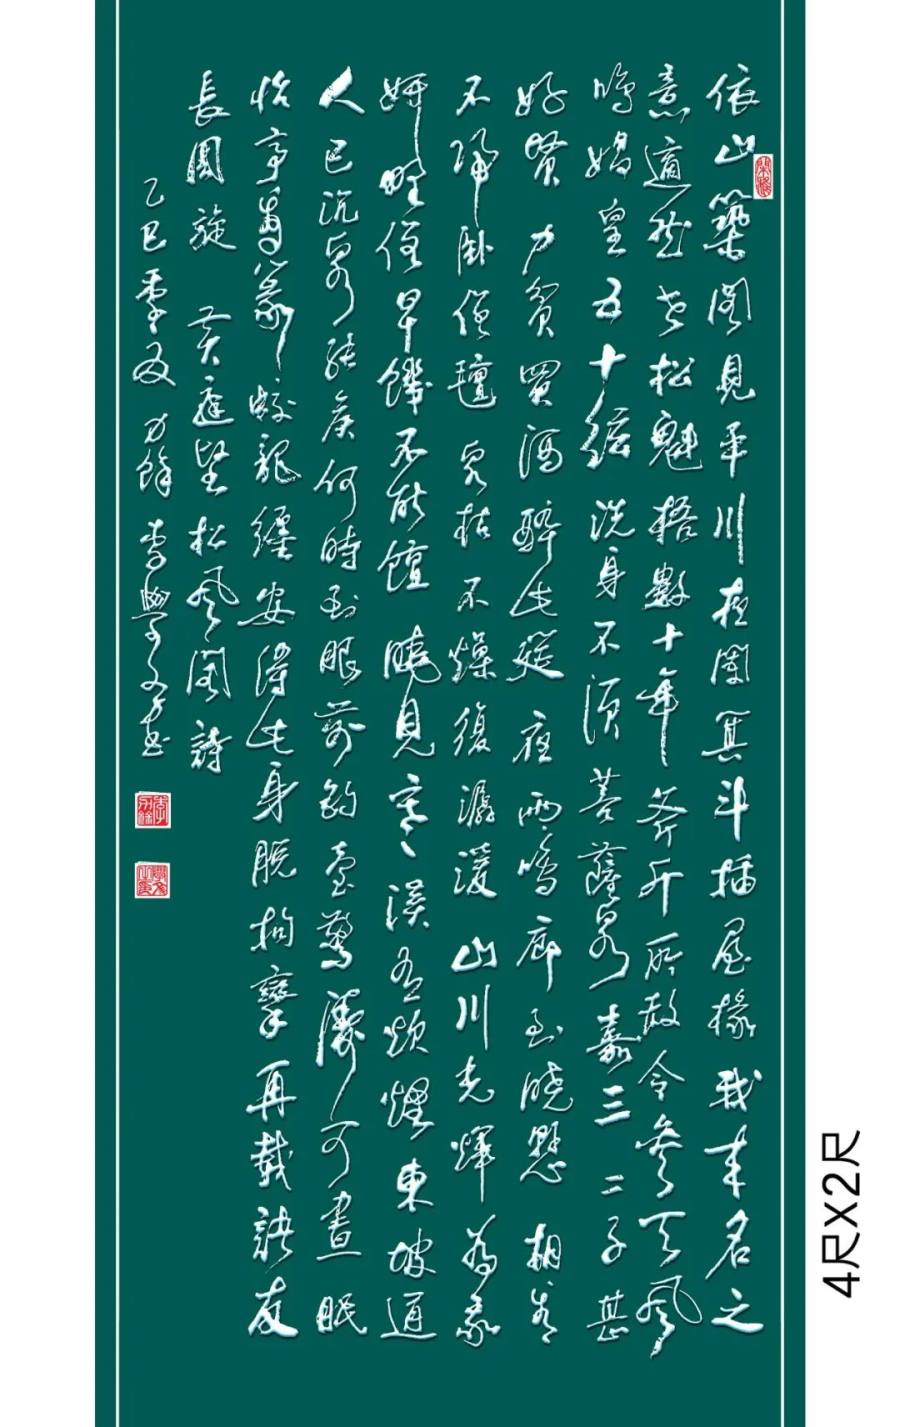 依山築阁見平川夜闌箕斗插屋椽我来名之
意適然老松魁梧數十年斧斤所赦令參天風
鳴媧皇五十絃洗身不須菩薩泉嘉三二子甚
好賢力貧買酒醉此筵夜雨鳴廊到曉懸相看
不歸卧僧氈泉枯不燥復潺湲山川光輝為我
妍野僧早饑不能饘曉見寒溪有炊煙東坡道
人已沉泉張侯何時到眼前釣臺驚濤可晝眠
怡亭看篆蛟龍纏安得此身脫拘攣再載諸友
長周旋 黄庭堅松風阁詩
乙巳季夏力餘李學文書
4尺X2尺